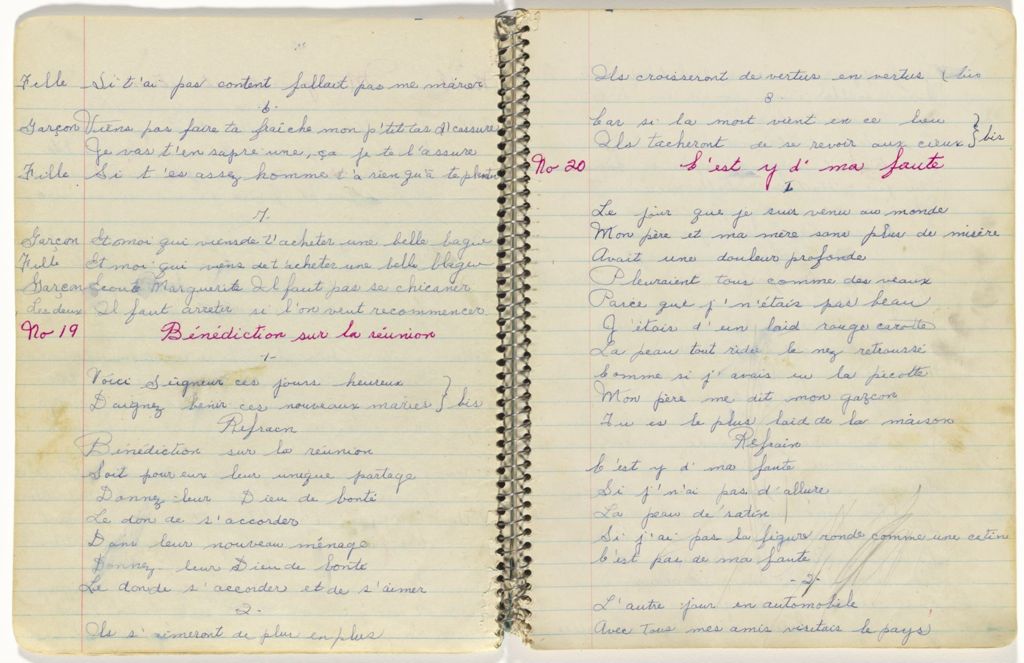 Fille Si t'ai pas content fallait pas me marier
6.
Garçon Viens pas faire ta fraîche mon p'tit tas d'cassure
Je vas t'en sapré une, ça je te l'assure
Fille Si t'es assez homme t'a rien qu'à te
7.
Garçon Et moi qui viens de t'acheter une belle bague
Fille Et moi qui viens de t'acheter une belle blague
Garçon Écoute Marguerite Il faut pas se chicaner
Les deux Il faut arrêter si l'on veut recommencer
No 19 Bénédiction sur la réunion
1-
Voici Seigneur ces jours heureux
Daignez bénir ces nouveaux mariés } bis
Refraen
Bénédiction sur la réunion
Soit pour eux leur unique partage
Donnez-leur Dieu de bonté
Le don de s'accorder
Dans leur nouveau ménage
Donnez leur Dieu de bonté
Le don de s'accorder et de s'aimer
2-
Ils s'aimeront de plus en plus
Ils croisseront de vertus en vertus ( bis
3.
Car si la mort vient en ce lieu
Ils tacheront de se revoir aux cieux } bis
No 20 C'est y d' ma faute
I
Le jour que je suis venu au monde
Mon père et ma mère sans plus de misère
Avait une douleur profonde
Pleuraient tous comme des veaux
Parce que j'n'étais pas beau
J'étais d'un laid rouge carotte
La peau tout ridé le nez retroussé
Comme si j'avais eu la picotte
Mon père me dit mon garçon
Tu es le plus laid de la maison
Refrain
C'est y d' ma faute
Si j'n'ai pas d'allure
La peau de satin
Si j'ai pas la figure ronde comme une catin
C'est pas de ma faute
-2-
L'autre jour en automobile
Avec tous mes amis visitais le pays